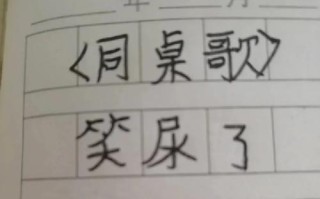 年 月
〈同桌歌〉
笑尿了